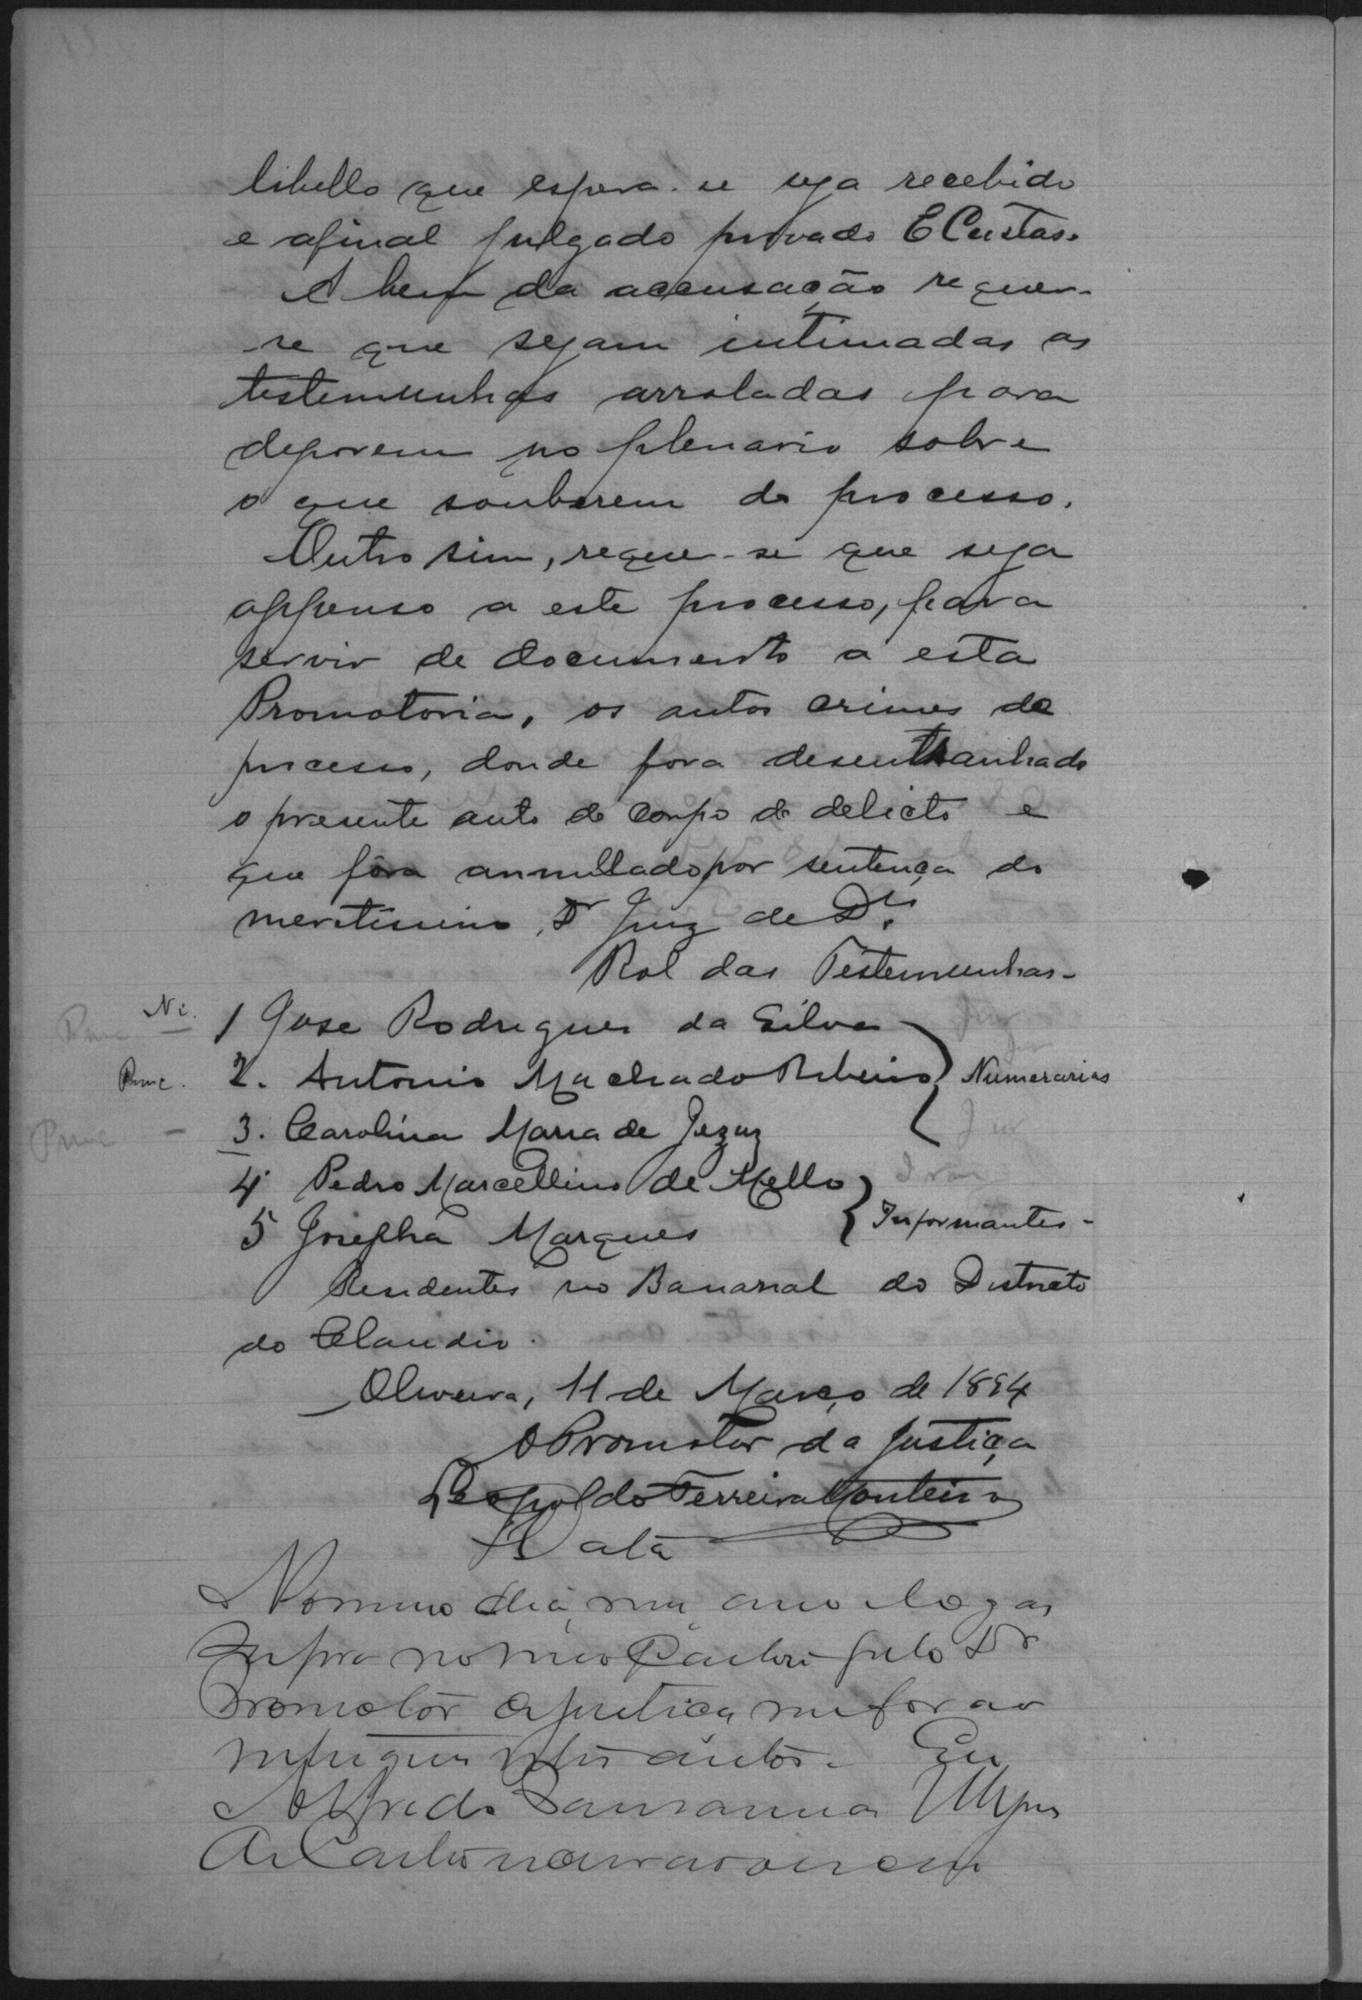 libello que espera-se seja recebido
e afinal julgado provado E Custas.
A bem da accusação requer-
-se que sejam intimadas as
testemunhas arroladas para
deporem no plenario sobre
o que souberem do processo.
Outro sim, requer-se que seja
appenso a este processo, para
servir de documento a esta
Promotoria, os autos crimes do
processo, donde fora desentranhado
o presente auto de corpo de delicto e
que fôra annullado por sentença do
meretissimo Dr Juiz de Dto.
Rol das Testemunhas-
1 Jose Rodrigues da Silva
2. Antonio Machado Ribeiro
Numerarias
3. Carolina Maria de Jezuz
4 Pedro Marcellino de Mello
5 Josepha Marques
Informantes-
Residentes no Bananal do Districto
do Claudio.
Oliveira, 11 de Março de 1894
O Promotor da Justiça
Leopoldo Ferreira Monteiro
Data
No mesmo dia, mez, anno e logar
supra no meo Cartorio pelo Dr
Promotor a justiça me forão
entregues estes autos. Eu
Alfredo